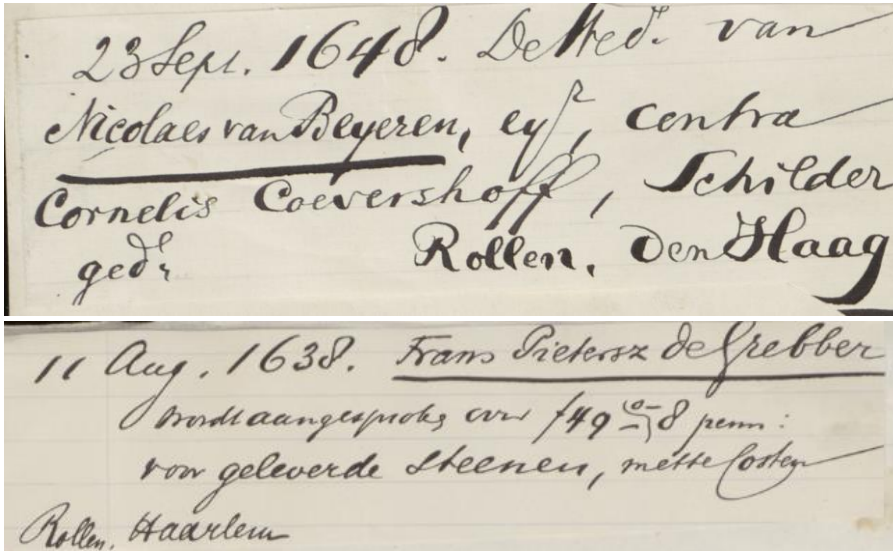 23 Sept. 1648. De Wed. van
Nicolaes van Beyeren, eyr, contra
Cornelis Coevershoff, Schilder
ged.r Rollen. Den Haag
11 Aug. 1638. Frans Pietersz de Grebber
wordt aangesproken over f 49 8 penn:
voor geleverde steenen, mette Costen
Rollen. Haarlem